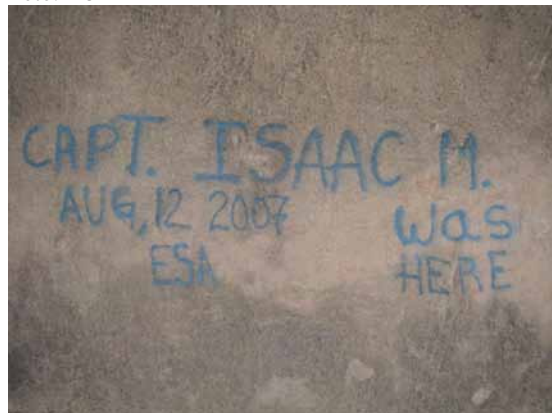 CAPT. ISAAC M.
AUG, 12 2007 was
ESA HERE